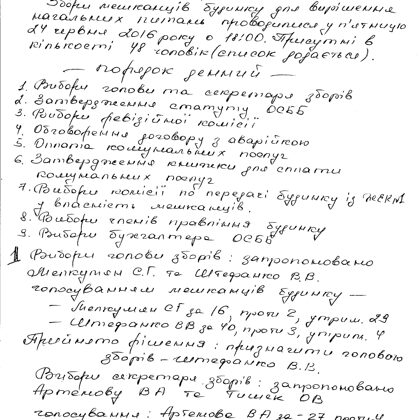 Збори мешканців будинку для вирішення
нагальних питань проводилися у п'ятницю
24 червня 2016 року о 18:00. Присутні в
кількості 48 чоловік (список додається).
— порядок денний —
1. Вибори голови та секретаря зборів
2. Затвердження статуту ОСББ
3. Вибори ревізійної комісії
4. Обговорення договору з аварійкою
5. Оплата комунальних послуг
6. Затвердження книжки для сплати
комунальних послуг
7. Вибори комісії по передачі будинку із ЖЕК№1
у власність мешканців.
8. Вибори членів правління будинку
9. Вибори бухгалтера ОСББ
1 Вибори голови зборів: запропоновано
Мелкумян С.Г. та Штефанко В.В.
голосуванням мешканців будинку —
— Мелкумян СГ за 16, проти 2, утрим. 29
— Штефанко ВВ за 40, проти 3, утрим. 4
Прийнято рішення: призначити головою
зборів – Штефанко В.В.
Вибори секретаря зборів: запропоновано
Артемову ВА та Тишек ОВ
голосування: Артемова ВА за - 27 проти 4